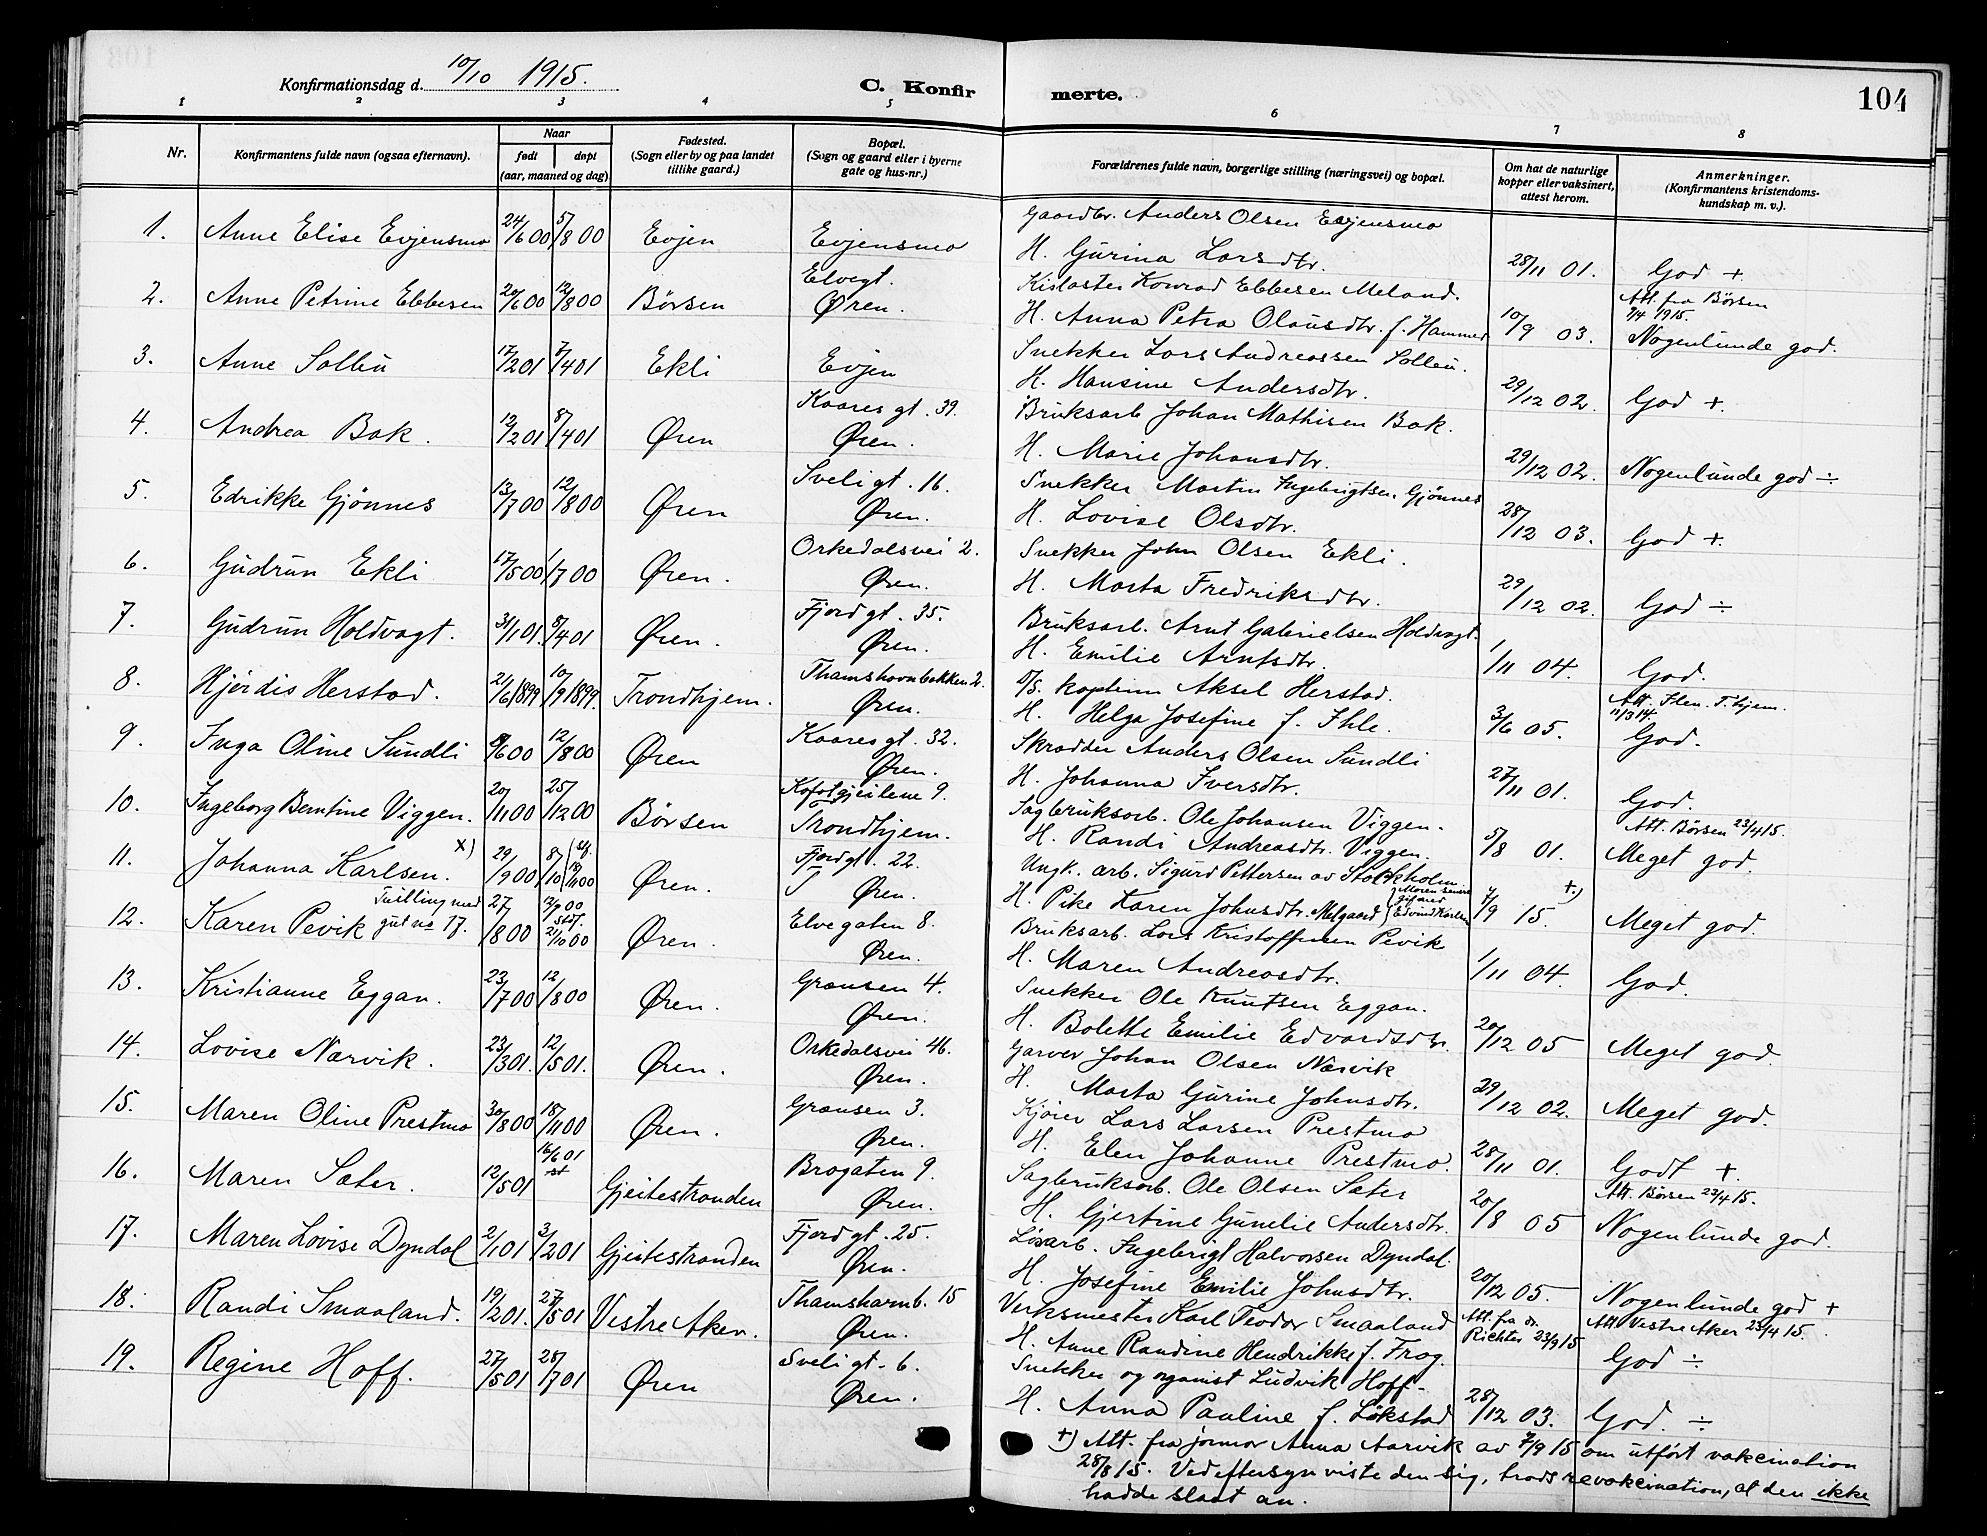 Konfirmationsdag d. 10/10 1915.
C. Konfirmerte.
104
1 2 3 4 5 6 7 8
Nr.
Konfirmantens fulde navn (ogsaa efternavn).
Naar
født døpt
(aar, maaned og dag)
Fødested.
(Sogn eller by og paa landet
tillike gaard.)
Bopæl.
(Sogn og gaard eller i byerne
gate og hus-nr.)
Forældrenes fulde navn, borgerlige stilling (næringsvei) og bopæl.
Om hat de naturlige
kopper eller vaksinert,
attest herom.
Anmerkninger.
(Konfirmantens kristendoms-
kundskap m. v.).
1. Anne Elise Evjensmo 24/6 00 5/8 00 Evjen Evjensmo
Gaardbr. Anders Olsen Evjensmo
H. Gurina Larsdtr. 28/11 01. God +
2. Anne Petrine Ebbesen 20/6 00 12/8 00 Børsen Elvegt. Øren.
Konrad Ebbesen Meland.
H. Anna Petra Olausdtr. f. Hammer 10/9 03. Att. fra Børsen 1915. Nogenlunde god.
3. Anne Solliu 17/2 01 7/4 01 Ekli Evjen
Snekker Lars Andreassen Solliu.
H. Hansine Andersdtr. 29/12 02. God +.
4. Andrea Bak. 12/2 01 8/4 01 Øren Kaaresgt. 39. Øren.
Bruksarb. Johan Mathisen Bak.
H. Marie Johansdtr. 29/12 02. Nogenlunde god ÷
5. Edrikke Gjönnes 13/7 00 12/8 00 Øren Sveligt. 16. Øren.
Snekker Martin Ingebrigtsen Gjönnes
H. Lovise Olsdtr. 28/12 03. God +.
6. Gudrun Ekli 17/5 00 1/7 00 Øren. Orkedalsvei 2. Øren.
Snekker John Olsen Ekli.
H. Marta Fredriksdtr. 29/12 02. God ÷
7. Gudrun Holdvagt. 31/1 01. 8/4 01 Øren. Fjordgt. 35. Øren.
Bruksarb. Arnt Gabrielsen Holdvagt.
H. Emilie Arntsdtr. 1/11 04. God.
8. Hjördis Herstad. 21/6 1899 10/9 1899. Trondhjem. Thamshavnbakken 2. Øren.
D/S. kaptein Aksel Herstad.
H. Helga Josefine f. Ihle. 3/6 05. Att. Ilen. T.hjem. 11/3 14. God.
9. Inga Oline Sundli 8/6 00 12/8 00 Øren Kaaresgt. 32. Øren.
Skrædder Anders Olsen Sundli
H. Johanna Iversdtr. 27/11 01. God.
10. Ingeborg Berntine Viggen. 20/11 00 25/12 00 Børsen 9. Trondhjem.
Sagbruksarb. Ole Johansen Viggen.
H. Randi Andreasdtr. Viggen. 5/8 01. Att. Børsen 23/4 15. Meget god.
11. Johanna Karlsen. x) 29/9 00 Øren. Fjordgt. 22. Øren.
Ungk. arb. Sigurd Pettersen av Stockholm
H. Pike Karen Johnsdtr. Melgaard (Moren senere gift med Edvind Karlsen 7/9 15. +) Meget god.
12. Karen Pevik Tvilling med gut no 17. 27/8 00 21/10 00 Øren. Elvegaten 8. Øren.
Bruksarb. Lars Kristoffersen Pevik
H. Maren Andreasdtr. 1/11 04. God.
13. Kristianne Eggan. 23/7 00 12/8 00 Øren. Grænsen 4. Øren.
Snekker Ole Knutsen Eggan.
H. Bolette Emilie Edvardsdtr. 20/12 05 Meget god.
14. Lovise Nærvik. 23/3 01. 12/5 01. Øren. Orkedalsvei 46. Øren.
Garver Johan Olsen Nærvik
H. Marta Gurine Johnsdtr. 29/12 02. Meget god.
15. Maren Oline Prestmo 30/8 00 18/11 00 Øren. Grænsen 3. Øren.
Kjører Lars Larsen Prestmo
H. Elen Johanne Prestmo. 28/11 01. Godt +.
16. Maren Sæter. 12/5 01 16/6 01 Gjeitestranden Brogaten 9. Øren.
Sagbruksarb. Ole Olsen Sæter
H. Gjertine Gunelie Andersdtr. 20/8 05 Att. Børsen 23/4 15. Nogenlunde god.
17. Maren Lovise Dyndal 2/1 01 3/2 01 Gjeitestranden Fjordgt. 25. Øren.
Løsarb. Ingebrigt Halvorsen Dyndal.
H. Josefine Emilie Johnsdtr. 20/12 05. Nogenlunde god +
18. Randi Smaaland. 19/2 01. 27/5 01 Vestre Aker. Thamshavnb. 15 Øren.
Verksmester Karl Teodor Smaaland
H. Anne Randine Hendrikke f. Frog. Att. fra dr. Richter 23/9 15 Att. Vestre Aker 23/4 15. God ÷
19. Regine Hoff. 27/5 01 28/7 01 Øren Sveligt. 6. Øren.
Snekker og organist Ludvik Hoff.
H. Anna Pauline f. Løkstad 28/12 03. God. ÷
+) Att. fra jormor Anna Aarvik av 7/9 15 om utført vakcination
28/8 15. Ved eftersyn viste den sig, trods revakcination, at den ikke
hadde slaat an.